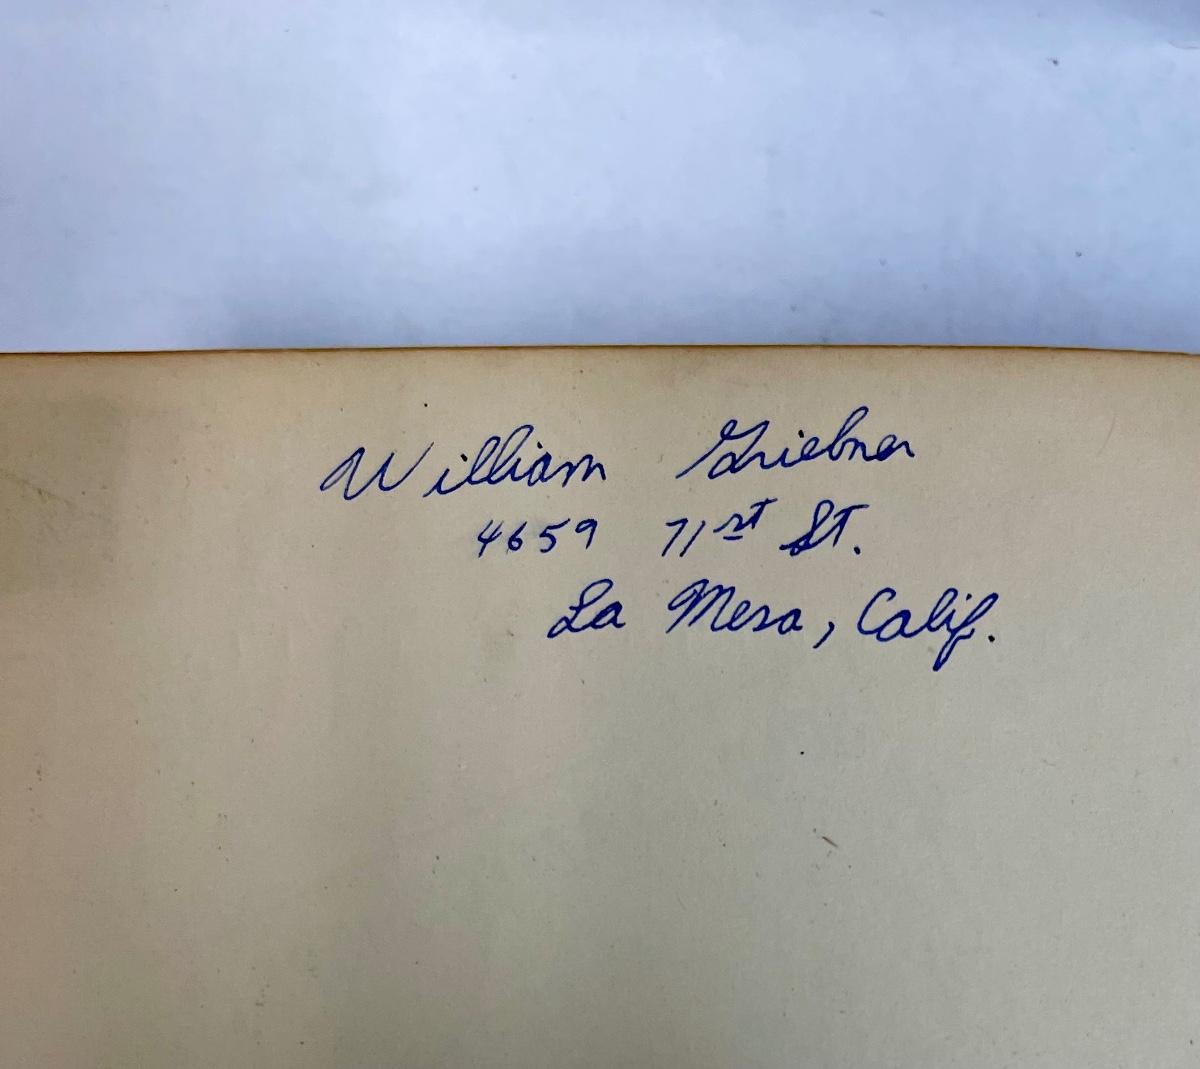 William Griebner
4659 71st St.
La Mesa, Calif.